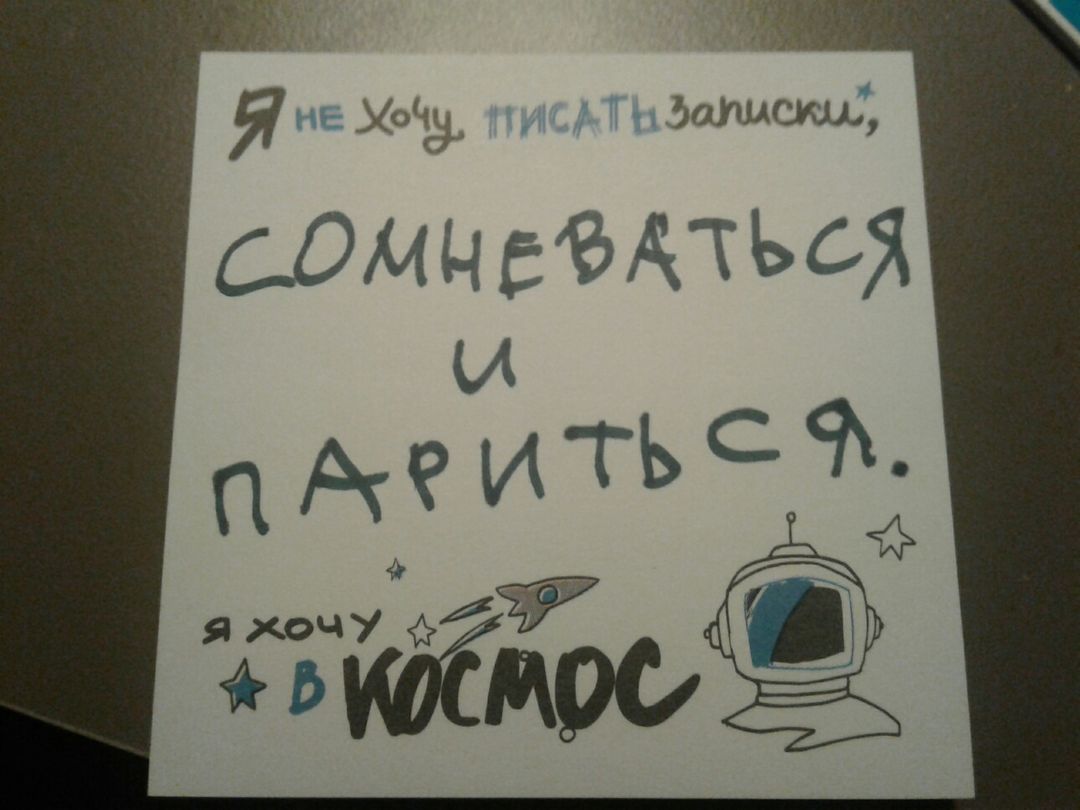 Я НЕ ХОЧУ ПИСАТЬ Записки,
СОМНЕВАТЬСЯ
И
ПАРИТЬСЯ.
Я ХОЧУ
В КОСМОС